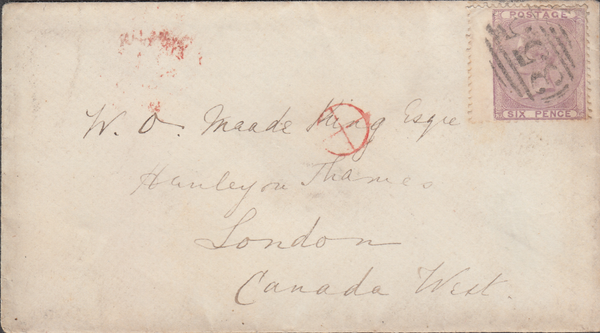 POSTAGE
SIX PENCE
W. O. Maade King Esqre
Henley on Thames
London
Canada West.